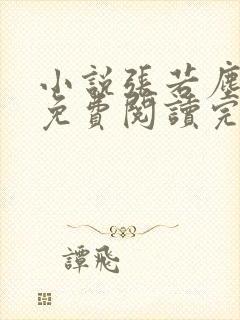 小説張若塵
免費閱讀完
譚飛